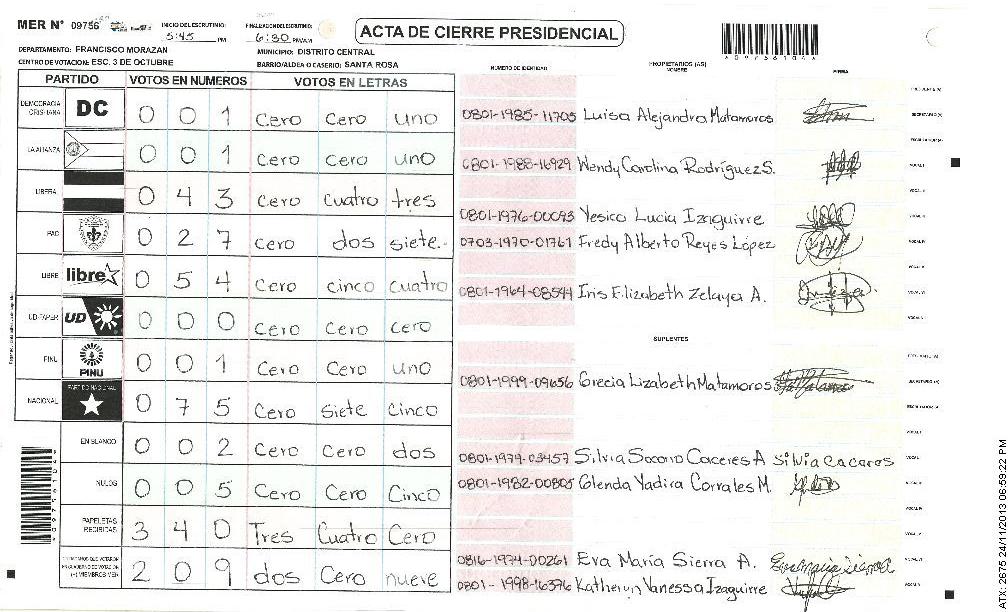 MER N° 09756
INICIO DEL ESCRUTINIO: 5:45 PM
FINALIZACION DEL ESCRUTINIO: 6:30 PM/AM
ACTA DE CIERRE PRESIDENCIAL
DEPARTAMENTO: FRANCISCO MORAZAN
MUNICIPIO: DISTRITO CENTRAL
CENTRO DE VOTACION: ESC. 3 DE OCTUBRE
BARRIO/ALDEA O CASERIO: SANTA ROSA
PARTIDO VOTOS EN NUMEROS VOTOS EN LETRAS
DEMOCRACIA CRISTIANA DC 0 0 1 Cero Cero uno
LA ALIANZA 0 0 1 Cero Cero uno
LIBERAL 0 4 3 Cero Cuatro tres
PAC 0 2 7 Cero dos siete.
LIBRE libre 0 5 4 Cero cinco cuatro
UD-FAPER UD 0 0 0 Cero Cero Cero
PINU PINU 0 0 1 Cero Cero uno
NACIONAL PARTIDO NACIONAL 0 7 5 Cero Siete Cinco
EN BLANCO 0 0 2 Cero Cero dos
NULOS 0 0 5 Cero Cero Cinco
PAPELETAS RECIBIDAS 3 4 0 Tres Cuatro Cero
2 0 9 dos Cero nueve
NUMERO DE IDENTIDAD
PROPIETARIOS (AS) NOMBRE
FIRMA
*09756104*
0801-1985-11705 Luisa Alejandra Matamoros
0801-1988-16929 Wendy Carolina Rodríguez S.
0801-1976-00093 Yesica Lucia Izaguirre
0703-1970-01761 Fredy Alberto Reyes López
0801-1964-08544 Iris Elizabeth Zelaya A.
SUPLENTES
0801-1999-09656 Grecia Lizabeth Matamoros
0801-1979-03457 Silvia Socorro Caceres A Silvia Caceres
0801-1982-00805 Glenda Yadira Corrales M.
0816-1974-00261 Eva María Sierra A.
0801-1998-16376 Katheryn Vanessa Izaguirre
ATX: 2675 24/11/2013 06:59:22 PM